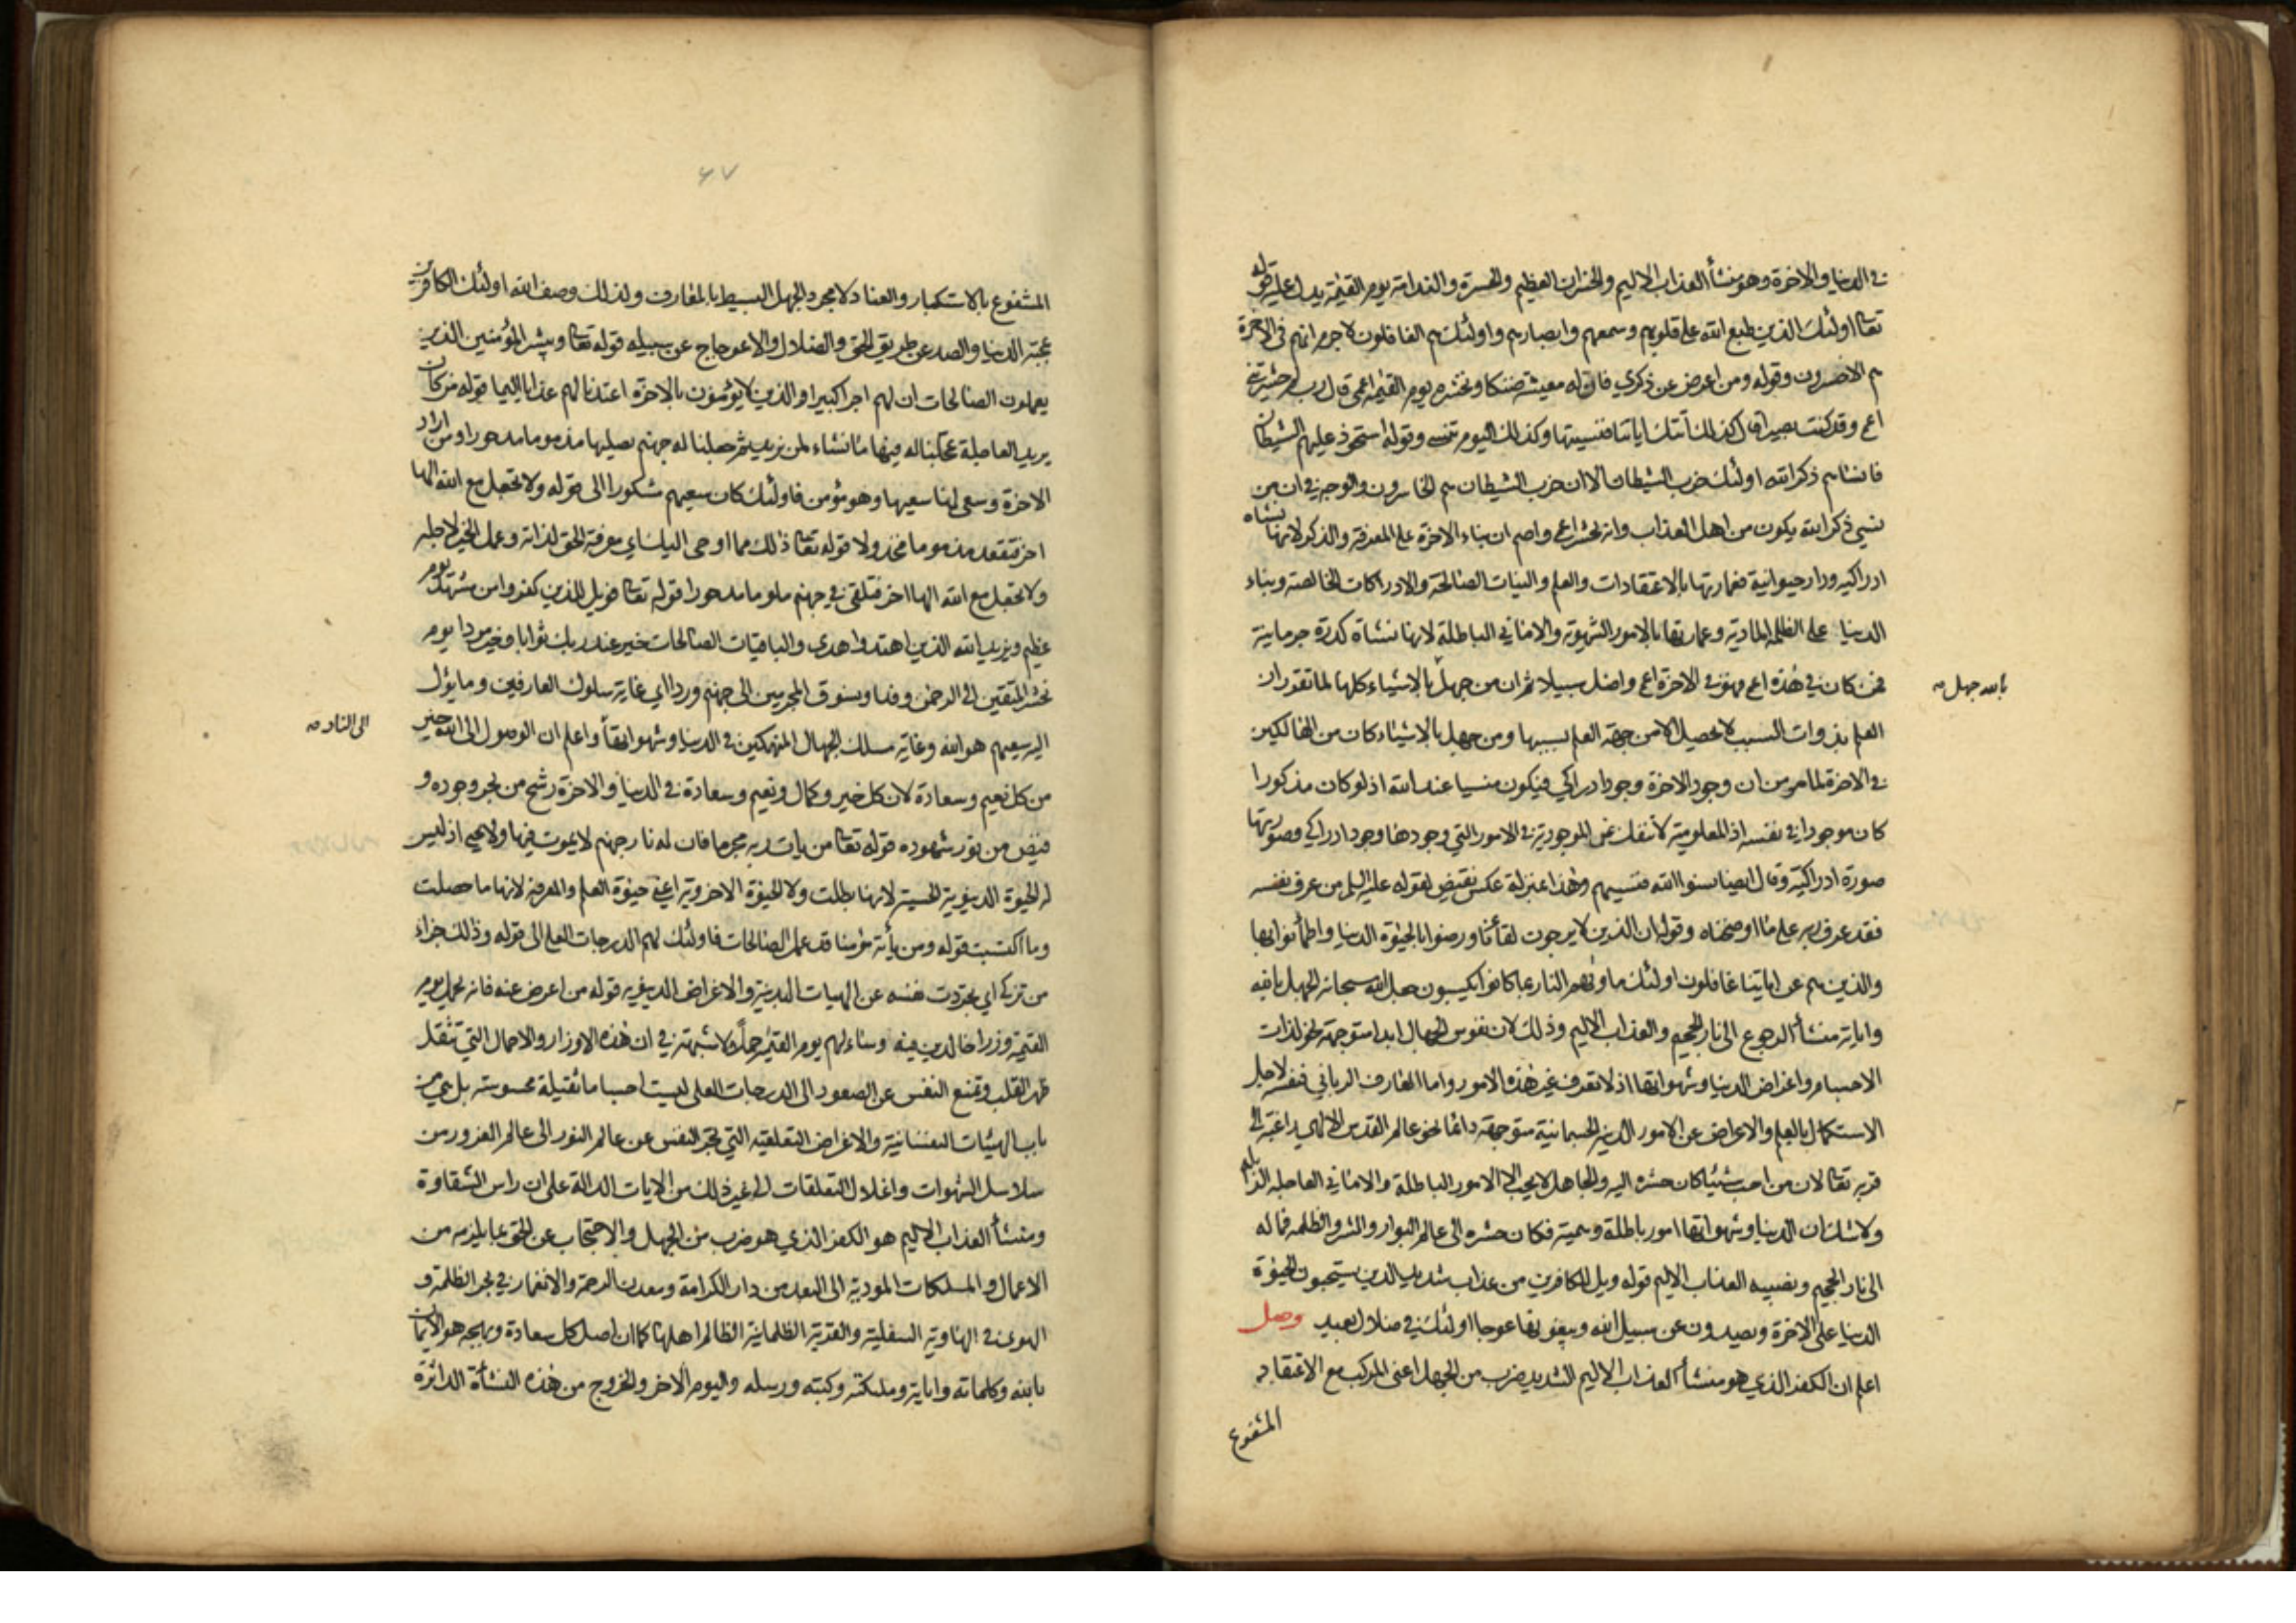 في الدنيا والاخرة وهو منشأ العذاب الاليم والخسران العظيم والحسرة والندامة يوم القيمة يدل عليه قوله
تعالى اولئك الذين طبع الله على قلوبهم وسمعهم وابصارهم واولئك هم الغافلون لا جرم انهم في الاخرة
هم الاخسرون وقوله ومن اعرض عن ذكري فان له معيشة ضنكا ونحشره يوم القيمة اعمى قال رب لم حشرتني
اعمى وقد كنت بصيرا قال كذلك أتتك اياتنا فنسيتها وكذلك اليوم تنسى وقوله استحوذ عليهم الشيطان
فانساهم ذكر الله اولئك حزب الشيطان الا ان حزب الشيطان هم الخاسرون والوجه في ان من
نسي ذكر الله يكون من اهل العذاب وانه يحشر اعمى واصم ان بناء الاخرة على المعرفة والذكر لانها نشاه
ادراكيه ودار حيوانية فعمارتها بالاعتقادات والعلم والنيات الصالحة والادراكات الخالصة وبناء
الدنيا على الظلمة المادية وعمارتها بالامور الشهوية والاماني الباطلة لانها نشاة كدرة جرمانية
فمن كان في هذه اعمى فهو في الاخرة اعمى واضل سبيلا ثم ان من جهل بالاشياء كلها لما تقرر ان
بالله جهل صه
العلم بذوات السبب لا يحصل الا من جهة العلم بسببها ومن جهل بالاشياء كان من الهالكين
في الاخرة لما مر من ان وجود الاخرة وجود ادراكي فيكون منسيا عند الله اذ لو كان مذكورا
كان موجودا في نفسه اذ المعلومية لا تنفك عن الموجودية في الامور التي وجودها وجود ادراكي وصورتها
صورة ادراكية وقال ايضا نسوا الله فنسيهم وهذا بمنزلة عكس نقيض لقوله عليه السلم من عرف نفسه
فقد عرف ربه على ما اوضحناه وقوله ان الذين لا يرجون لقاءنا ورضوا بالحيوة الدنيا واطمأنوا بها
والذين هم عن اياتنا غافلون اولئك ماويهم النار بما كانوا يكسبون جعل الله سبحانه الجهل بالله
واياته منشأ الرجوع الى نار الجحيم والعذاب الاليم وذلك لان نفوس الجهال ابدا متوجهة نحو لذات
الاجسام واغراض الدنيا وشهواتها اذ لا تعرف غير هذه الامور واما العارف الرباني فنفسه لاجل
الاستكمال بالعلم والاعراض عن الامور الدنيه الجسمانية متوجهة دائما نحو عالم القدس الالهي راغبة الى
قربه تعالى لان من احب شيئا كان حشره اليه والجاهل لا يحب الا الامور الباطلة والاماني العاجله الزايله
ولا شك ان الدنيا وشهواتها امور باطلة وهمية فكان حشره الى عالم البوار والشر والظلمه فماله
الى نار الجحيم ونصيبه العذاب الاليم قوله وويل للكافرين من عذاب شديد الذين يستحبون الحيوة
الدنيا على الاخرة ويصدون عن سبيل الله ويبغونها عوجا اولئك في ضلال بعيد وصل
اعلم ان الكفر الذي هو منشأ العذاب الاليم الشديد ضرب من الجهل اعنى المركب مع الاعتقاد
المشفوع
٤٧
المشفوع بالاستكبار والعناد لا مجرد الجهل البسيط بالمعارف ولذلك وصف الله اولئك الكافرين
بمحبة الدنيا والصد عن طريق الحق والضلال والاعوجاج عن سبيله قوله تعالى ويبشر المؤمنين الذين
يعملون الصالحات ان لهم اجرا كبيرا والذين لا يؤمنون بالاخرة اعتدنا لهم عذابا اليما قوله من كان
يريد العاجلة عجلنا له فيها ما نشاء لمن نريد ثم جعلنا له جهنم يصليها مذموما مدحورا ومن اراد
الاخرة وسعى لها سعيها وهو مؤمن فاولئك كان سعيهم شكورا الى قوله ولا تجعل مع الله الها
اخر فتقعد مذموما مخذولا قوله تعالى ذلك مما اوحى اليك اي معرفة الحق لذاته وعمل الخير لاجله
ولا تجعل مع الله الها اخر فتلقى في جهنم ملوما مدحورا قوله تعالى فويل للذين كفروا من مشهد يوم
عظيم ويزيد الله الذين اهتدوا هدى والباقيات الصالحات خير عند ربك ثوابا وخير مردا يوم
نحشر المتقين الى الرحمن وفدا ونسوق المجرمين الى جهنم وردا اي غاية سلوك العارفين وما يؤل
اليه سعيهم هو الله وغاية مسلك الجهال المنهمكين في الدنيا وشهواتها واعلم ان الوصول الى الله خير
الى النار صه
من كل نعيم وسعادة لان كل خير وكمال ونعيم وسعادة في الدنيا والاخرة رشح من بحر وجوده و
فيض من نور شهوده قوله تعالى من يات ربه مجرما فان له نار جهنم لا يموت فيها ولا يحيى اذ ليس
له الحيوة الدنيوية الحسية لانها بطلت ولا الحيوة الاخروية اعني حيوة العلم والمعرفة لانها ما حصلت
وما اكتسبت قوله ومن يأته مؤمنا قد عمل الصالحات فاولئك لهم الدرجات العلى الى قوله وذلك جزاء
من تزكى اي تجردت نفسه عن الهيات البدنية والاغراض الدنيويه قوله من اعرض عنه فانه يحمل يوم
القيمة وزرا خالدين فيه وساء لهم يوم القيمة حملا لا شبهة في ان هذه الاوزار والاحمال التي تثقل
ظهر القلب وتمنع النفس عن الصعود الى الدرجات العلى ليست اجساما ثقيلة محسوسة بل هي من
باب الهيئات النفسانية والاغراض التعلقيه التي تجر النفس عن عالم النور الى عالم الغرور من
سلاسل الشهوات واغلال التعلقات الى غير ذلك من الايات الدالة على ان راس الشقاوة
ومنشأ العذاب الاليم هو الكفر الذي هو ضرب من الجهل والاحتجاب عن الحق بما يلزمه من
الاعمال والملكات المودية الى البعد من دار الكرامة ومعدن الرحمة والانغمار في بحر الظلمة و
الهوى في الهاوية السفلية والقرية الظلمانية الظالم اهلها كما ان اصل كل سعادة وبهجه هو الايمان
بالله وكلماته واياته وملئكته وكتبه ورسله واليوم الاخر والخروج من هذه النشأة الداثرة